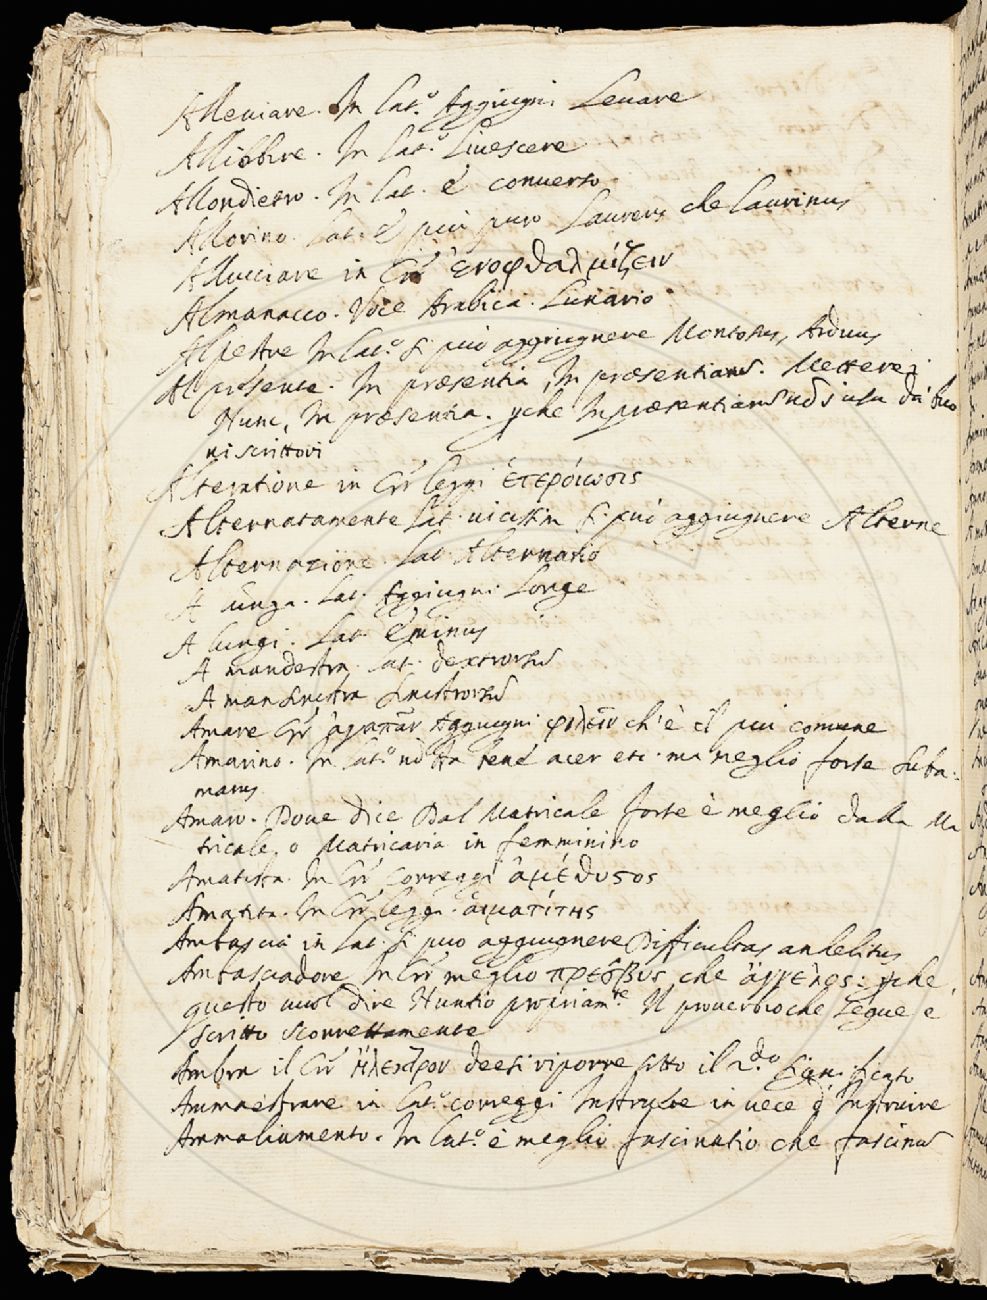 Alleuiare. In Lat.º Aggiugni Leuare
Allibbire. In Lat.º Liuescere
Allondietro. In Lat. è conuerso
Allorino. Lat. è piu puro Laureus che Laurinus
Allucciare in Gr. ἐνοφθαλμίζειν
Almanacco. Voce Arabica. Lunario
Alpestre In Lat.º si può aggiugnere Montosus, Arduus
Al presente. In præsentia, In præsentiarũ. Mettere:
Nunc, In præsentia. ꝑche Inpræsentiarũ nõ s'usa da' buo
ni scrittori
Alteratione in Gr. leggi ἑτερόιωσις
Alternatamente Lat. uicissim si può aggiugnere Alterne
Alternazione. Lat. Alternatio
A lunga. Lat. Aggiugni Longe
A lungi. Lat. Eminus
A mandestra. Lat. dextrorsũ
A mansinistra sinistrorsũ
Amare Gr. ἀγαπᾶν Aggiugni φιλεῖν ch'è il piu comune
Amarino. In Lat.º nõ sta bene acer etc. ma meglio forse suba-
marus
Amaro. Doue dice Dal Matricale forse è meglio dalla Ma
tricale, o Matricaria in femminino
Amatista. In Gr. correggi ἀμέθυσος
Amatita. In Gr. leggi. ἁιματίτης
Ambascia in Lat. si puo aggiugnere Difficultas anhelitus
Ambasciadore In Gr. meglio πρέσβυς che ἄγγελος: ꝑche
questo uuol dire Nuntio propriam.te Il prouerbio che segue è
scritto scorrettamente
Ambra il Gr. ἤλεκτρον deesi riporre sotto il 2.do significato
Ammaestrare in Lat.º correggi Instruere in uece d' Instruire
Ammaliamento. In Lat.º è meglio fascinatio che fascinũ